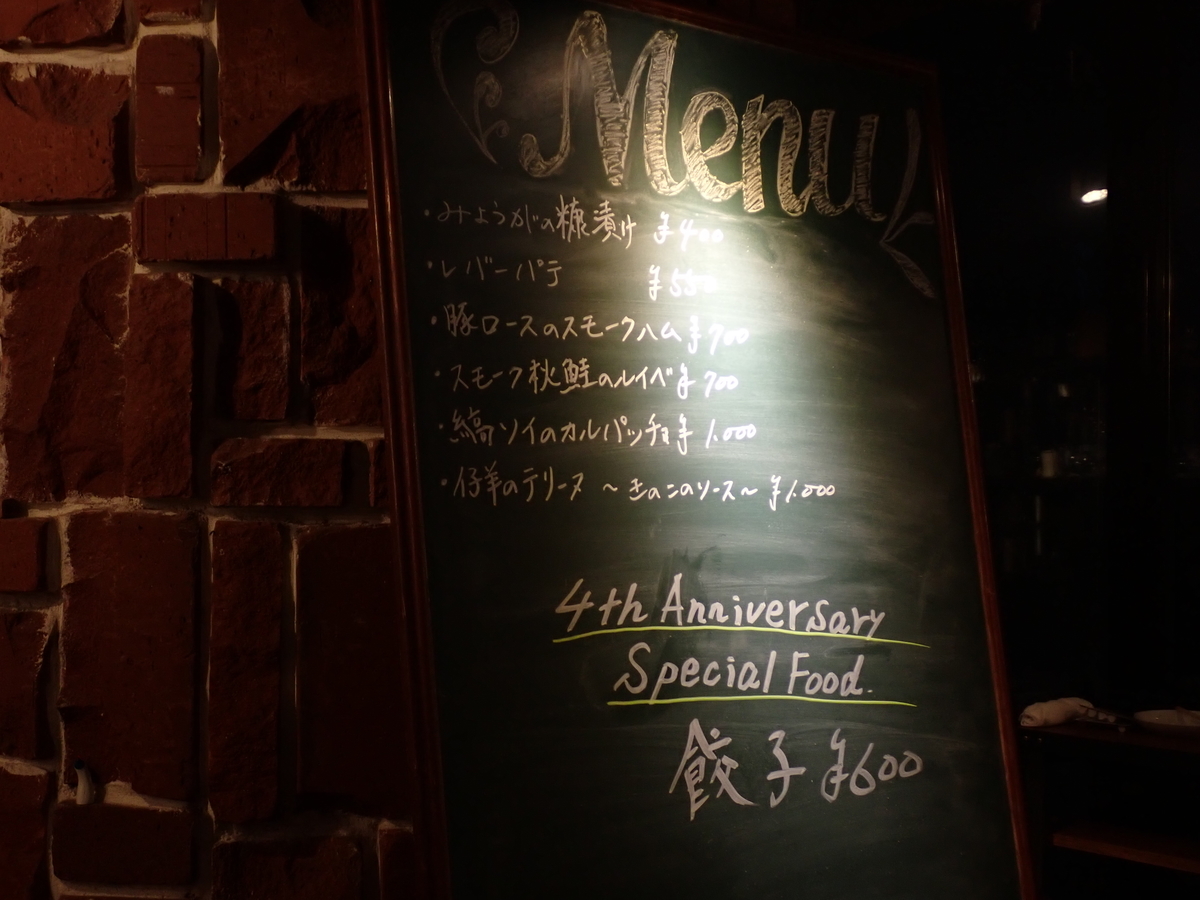 Menu
・みょうがの糠漬け ¥400
・レバーパテ ¥550
・豚ロースのスモークハム ¥700
・スモーク秋鮭のルイベ ¥700
・縞ソイのカルパッチョ ¥1.000
・仔羊のテリーヌ ～きのこのソース～ ¥1.000
4th Anniversary
Special Food.
餃子 ¥600